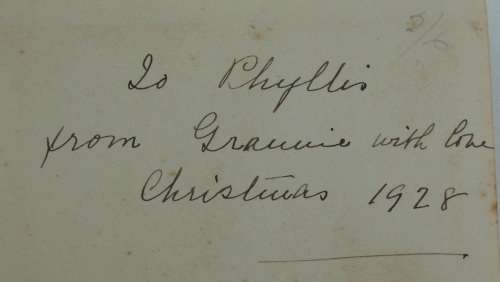 5/-
To Phyllis
from Grannie with love
Christmas 1928